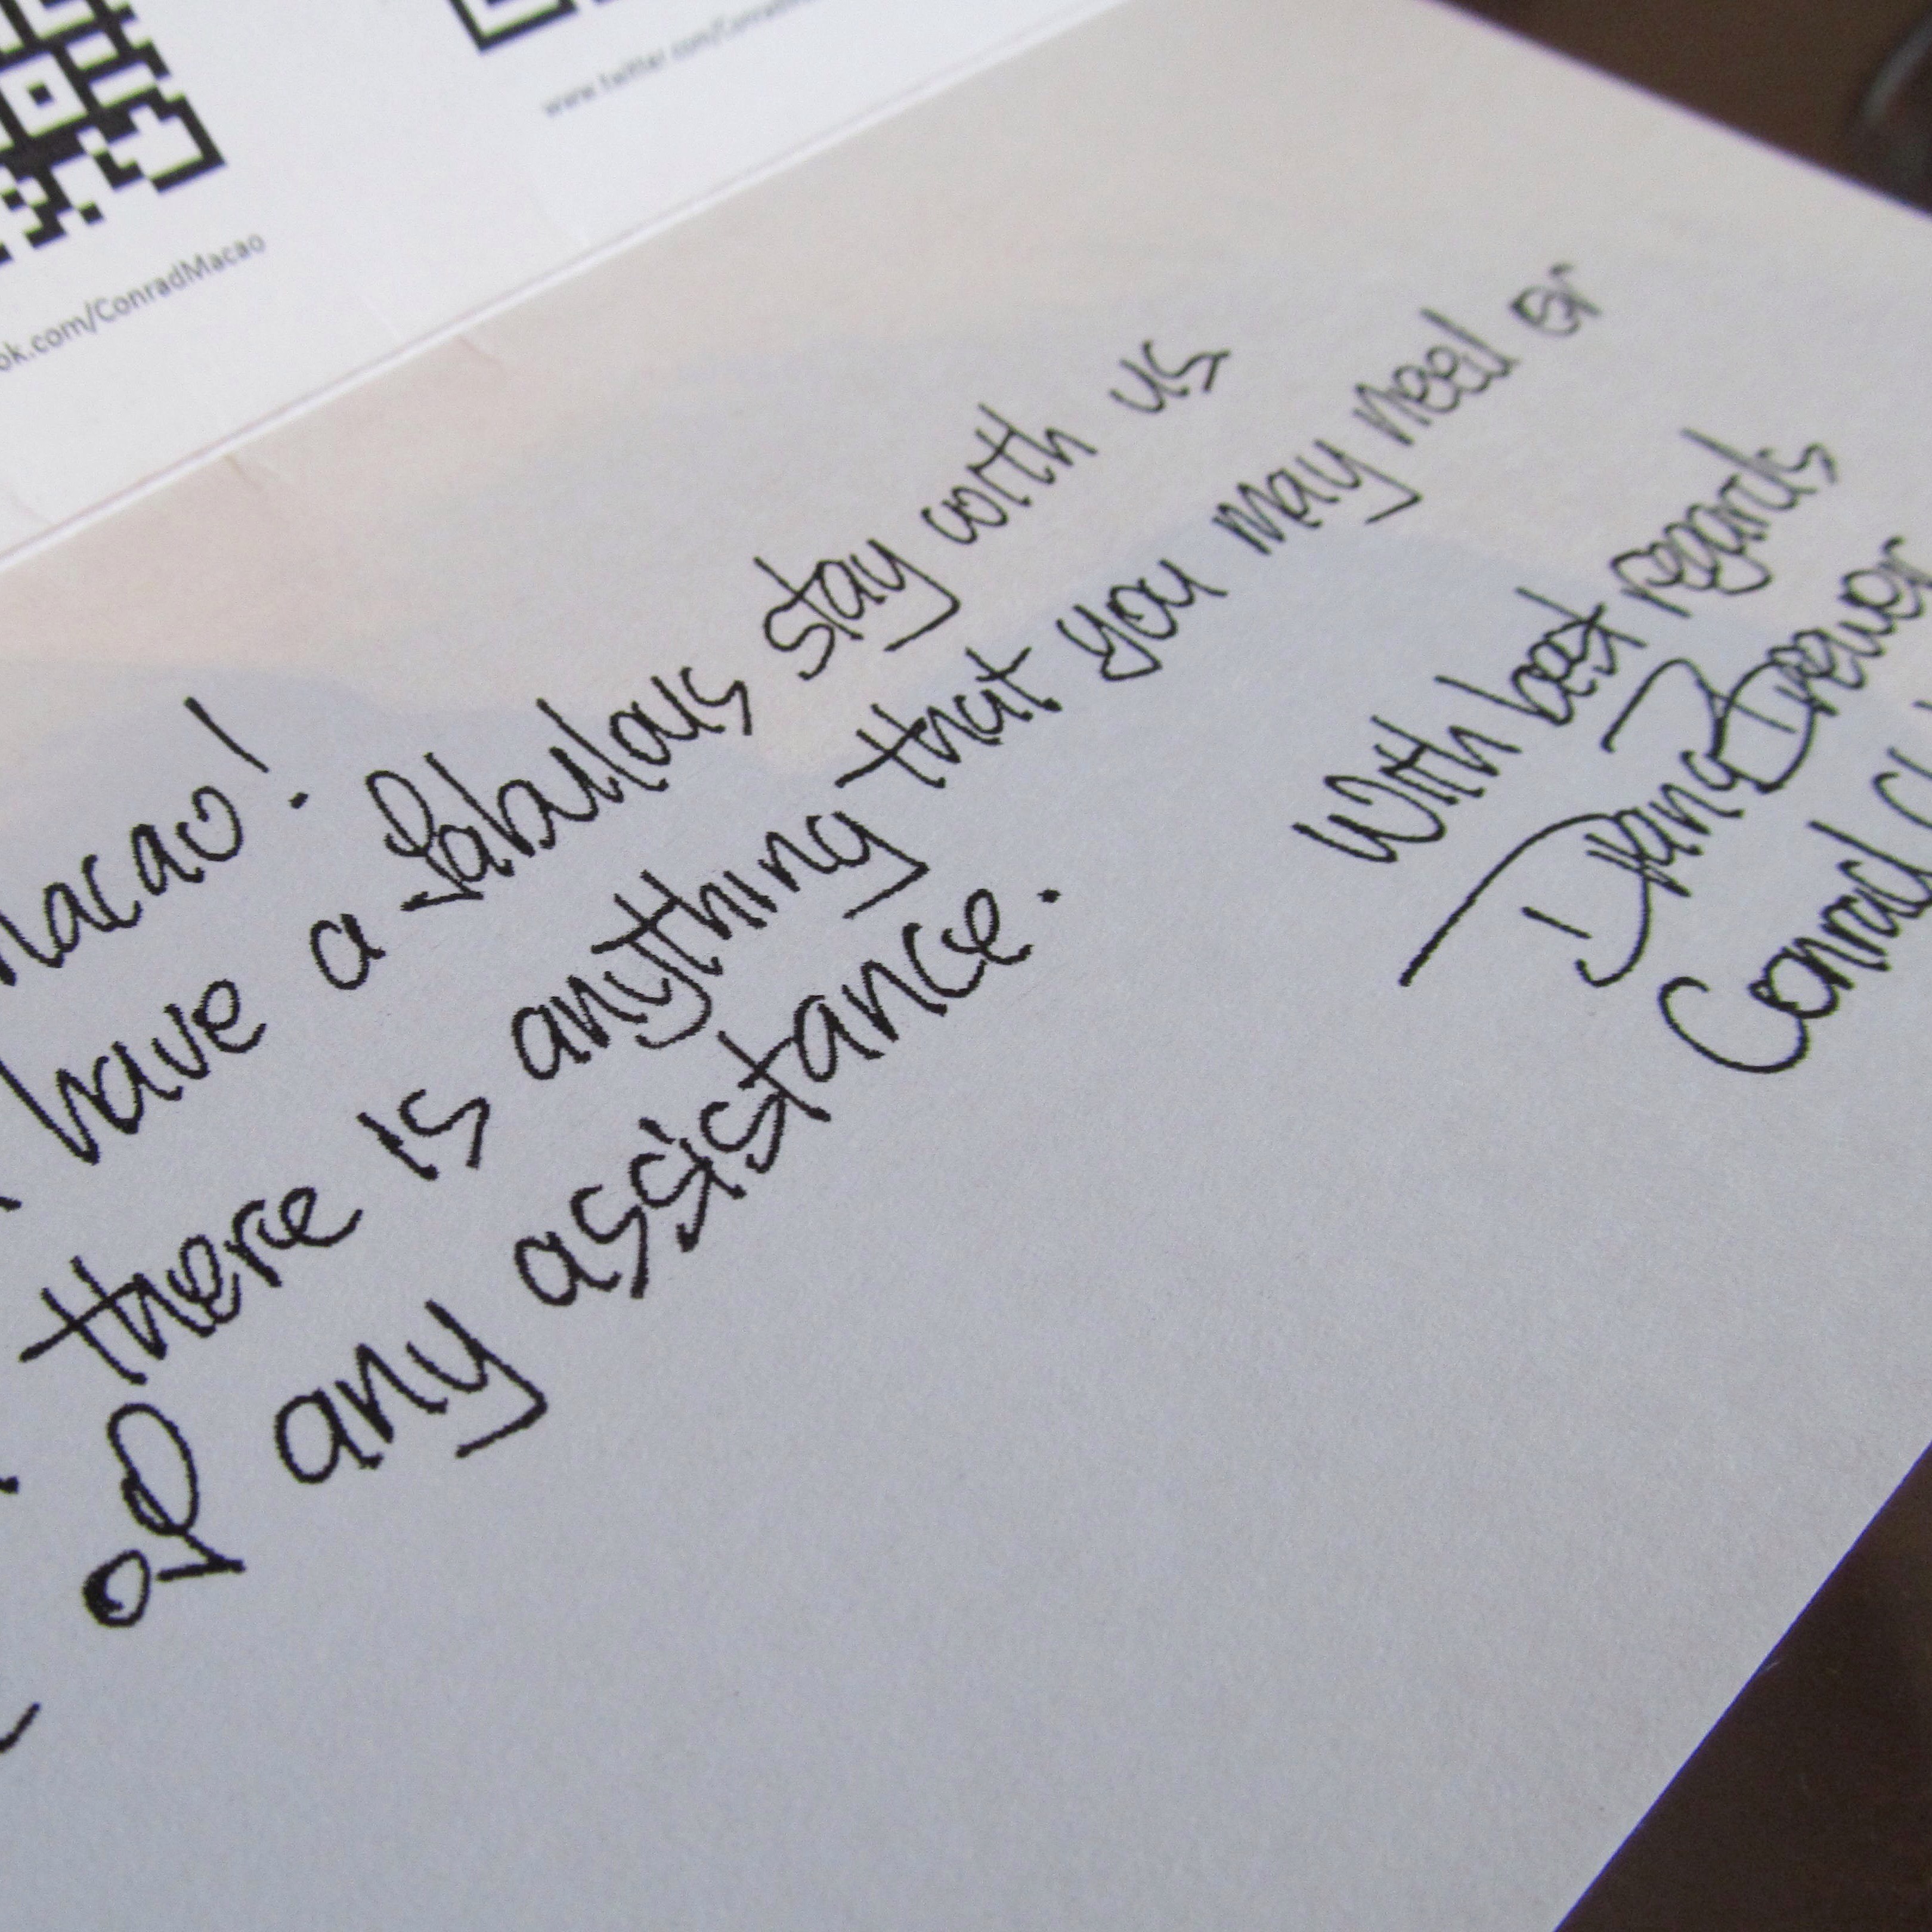 www.twitter.com/Conrad
ok.com/ConradMacao
Macao!
have a fabulous stay with us
there is anything that you may need or
of any assistance.
With best regards
Conrad